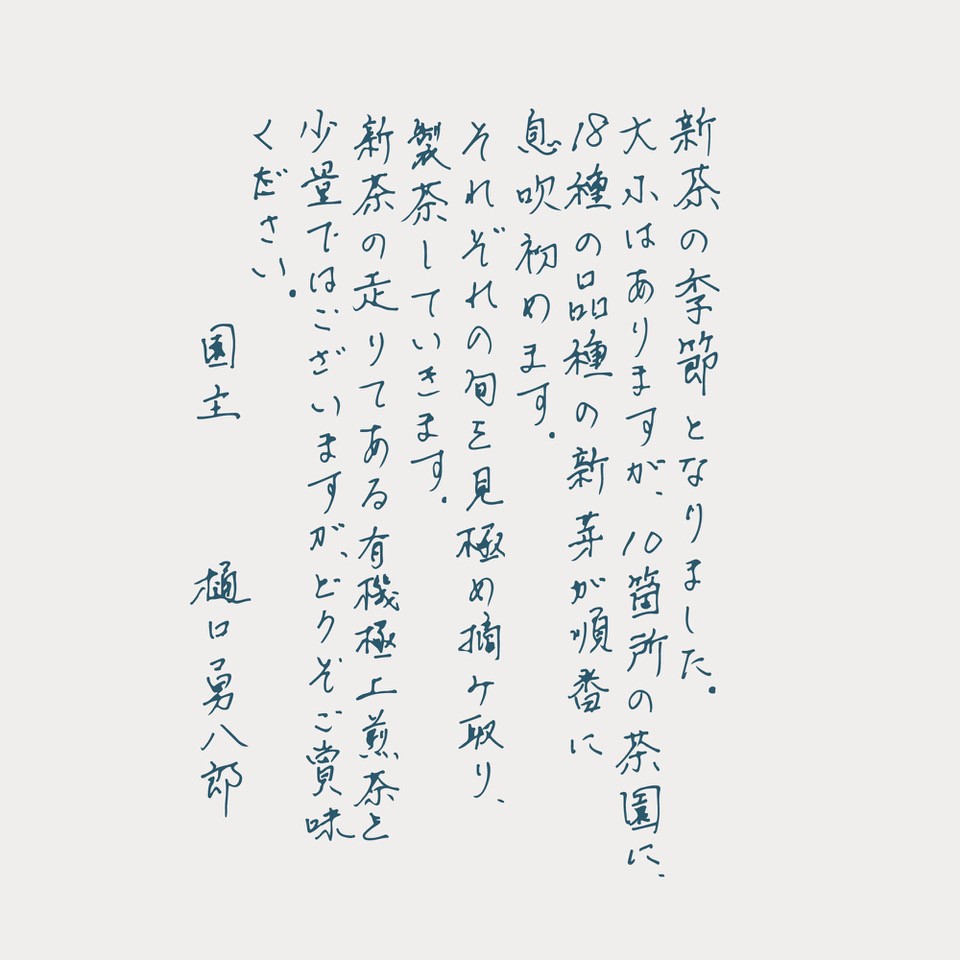 新茶の季節となりました。
大小はありますが、10箇所の茶園に、
18種の品種の新芽が順番に
息吹初めます。
それぞれの旬を見極め摘み取り、
製茶していきます。
新茶の走りてある有機極上煎茶を
少量ではございますが、どうぞご賞味
ください。
園主 樋口勇八郎